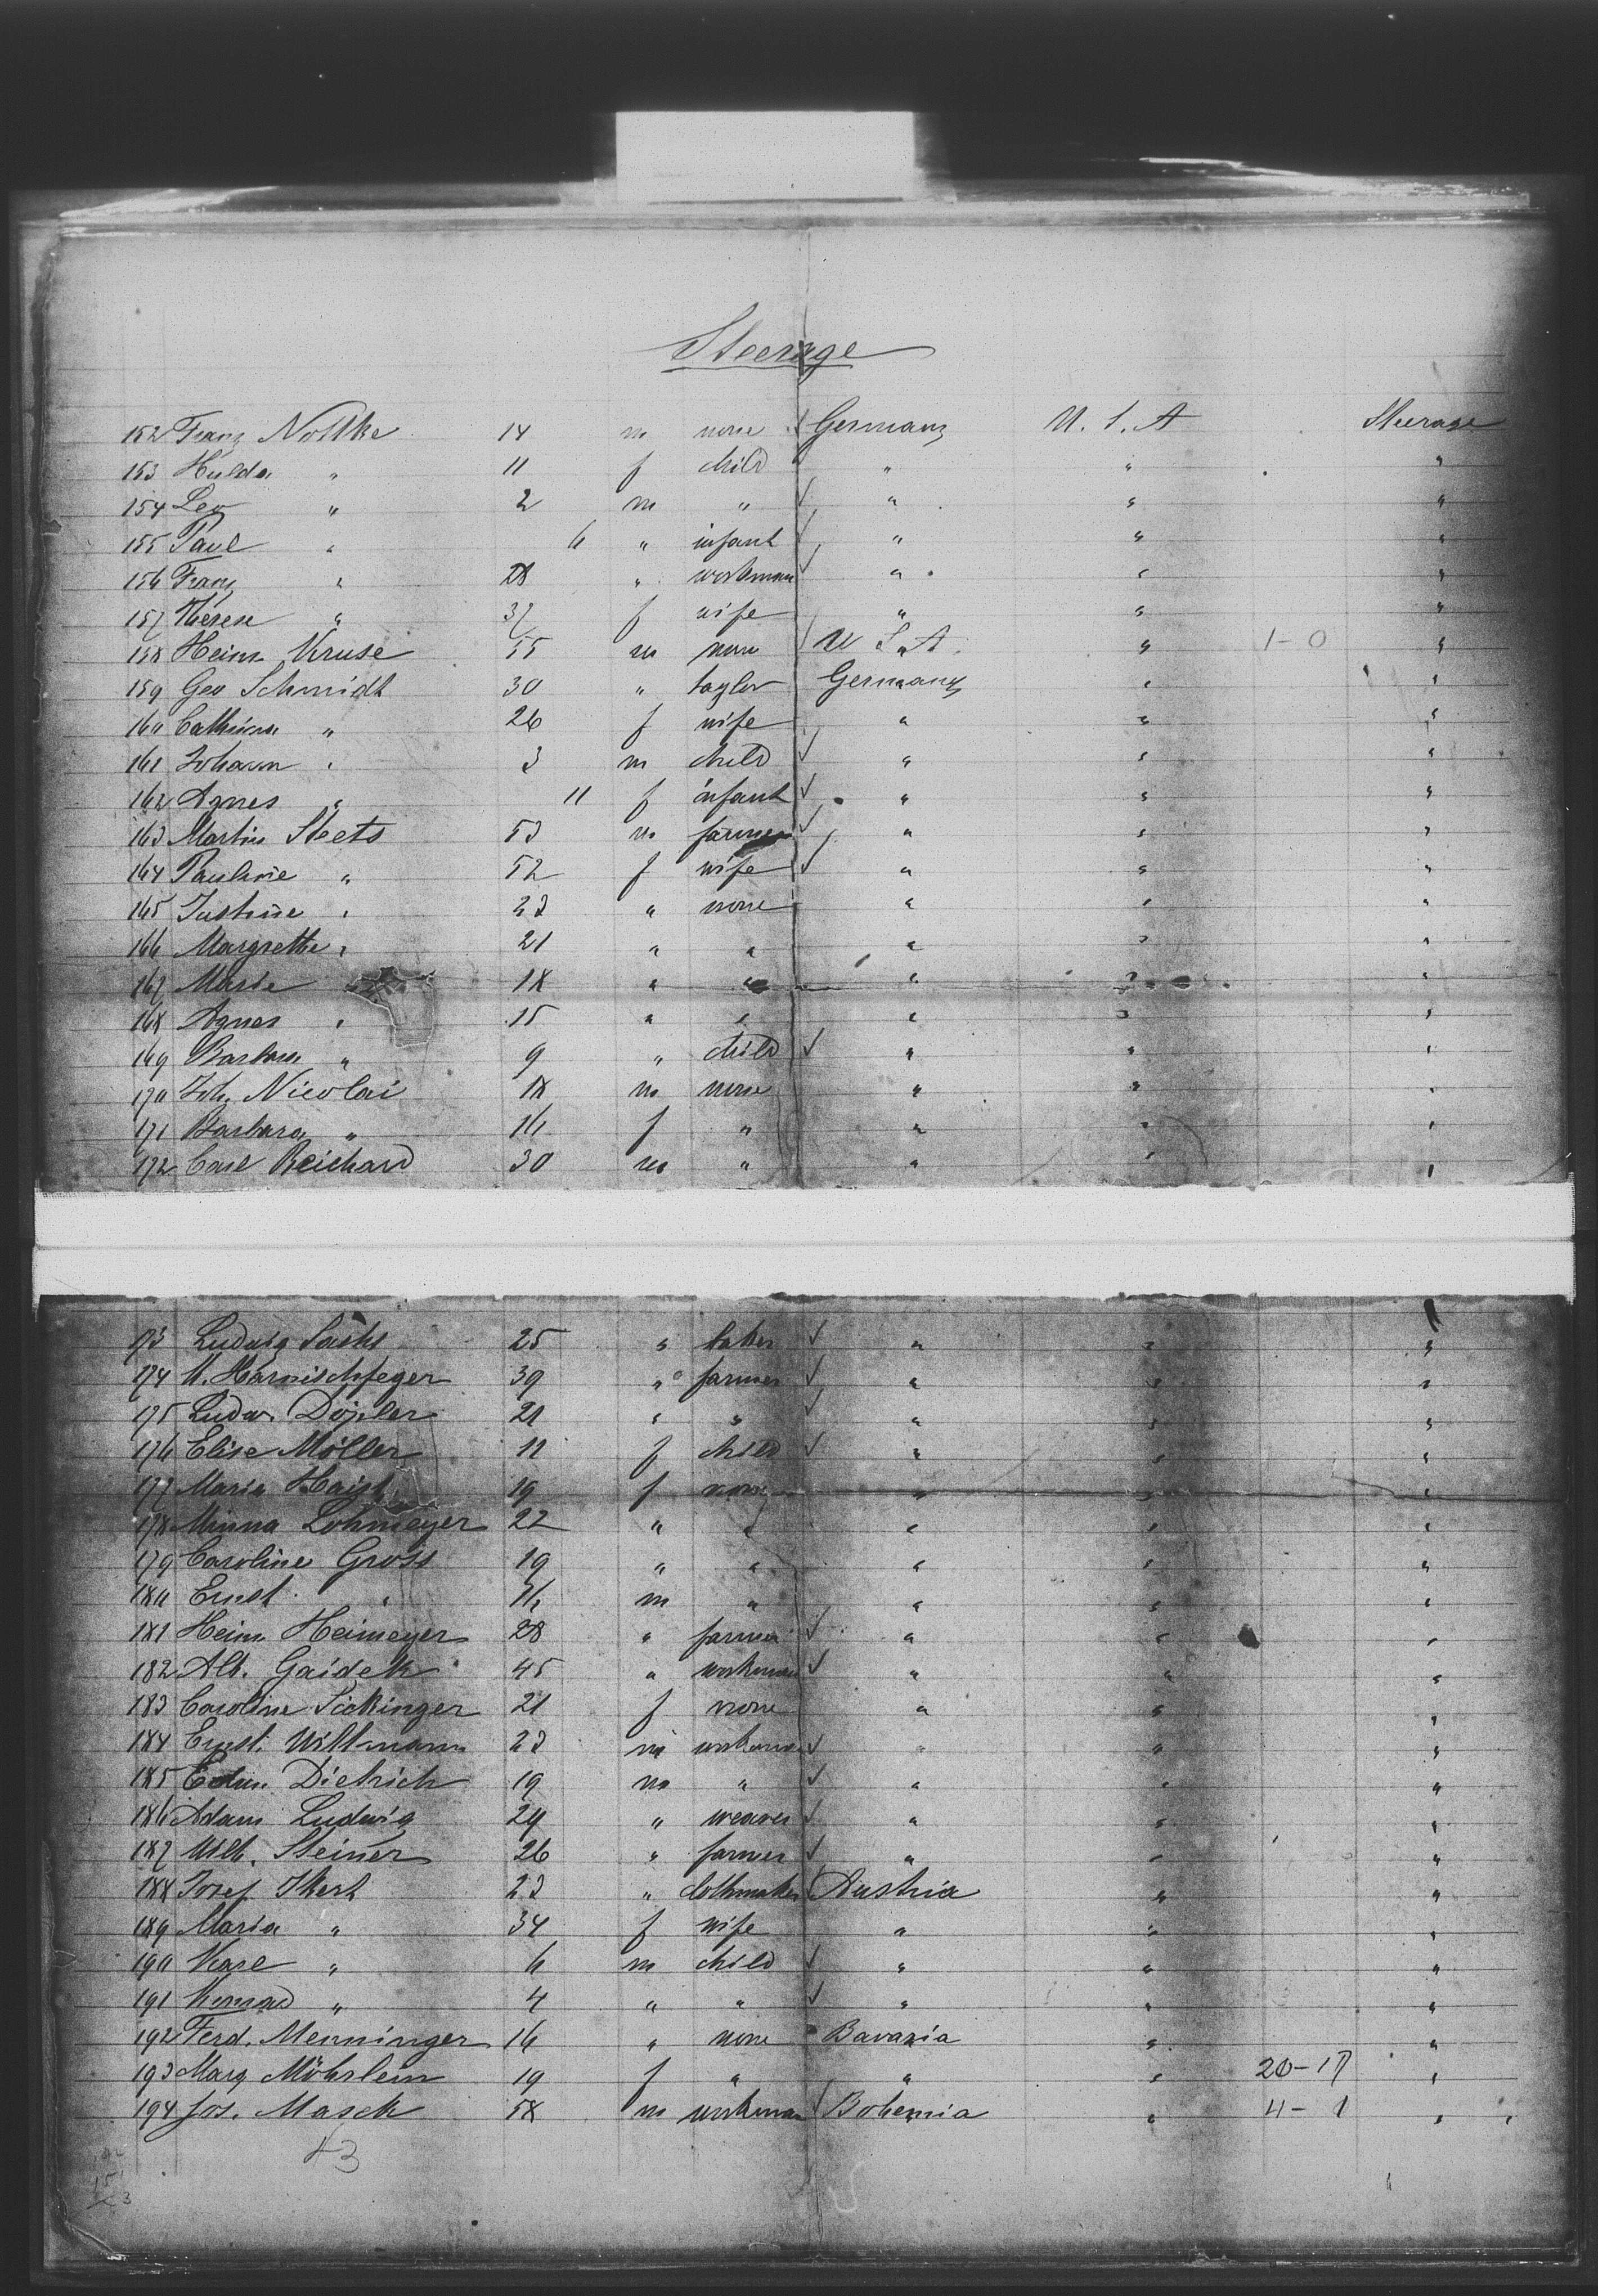 Steerage
152 Franz Nottke 14 m none Germany U. S. A Steerage
153 Hulda " 11 f child " " "
154 Leo " 2 m " " " "
155 Paul " 6 " infant " " "
156 Franz " 28 " workman " " "
157 Therese " 37 f wife " " "
158 Heinr. Kruse 55 m none U S. A. " 1-0 "
159 Geo Schmidt 30 " taylor Germany " "
160 Cathrina " 26 f wife " " "
161 Johann " 3 m child " " "
162 Agnes " 11 f infant " " "
163 Martin Steets 53 m farmer " " "
164 Pauline " 52 f wife " " "
165 Justine " 23 " none " " "
166 Margrethe " 21 " " " " "
167 Marie 18 " " " " "
168 Agnes " 15 " " " " "
169 Barbara " 9 " child " " "
170 Joh. Nicolai 18 m none " " "
171 Barbara " 16 f " " " "
172 Carl Reichard 30 m " " " "
173 Ludwig Sachs 25 " baker " " "
174 M. Harnischfeger 39 " farmer " " "
175 Ludw. Döpler 21 " " " " "
176 Elise Möller 11 f child " " "
177 Maria Haist 19 f none " " "
178 Minna Lohmeyer 22 " " " " "
179 Caroline Gross 19 " " " " "
180 Ernst " 16 m " " " "
181 Heinr. Heimeyer 28 " farmer " " "
182 Alb. Gaidek 45 " workman " " "
183 Caroline Sickinger 21 f none " " "
184 Ernst. Wittmann 23 m workman " " "
185 Edm. Dietrich 19 m " " " "
186 Adam Ludwig 29 " weaver " " "
187 Wilh. Steiner 26 " farmer " " "
188 Josef Ikert 23 " clothmaker Austria " "
189 Maria " 34 f wife " " "
190 Karl " 6 m child " " "
191 Konrad " 4 " " " " "
192 Ferd. Menninger 16 " none Bavaria " "
193 Marg Möhrlein 19 f " " " 20-17 "
194 Jos. Masek 58 m workman Bohemia " 4-1 "
43